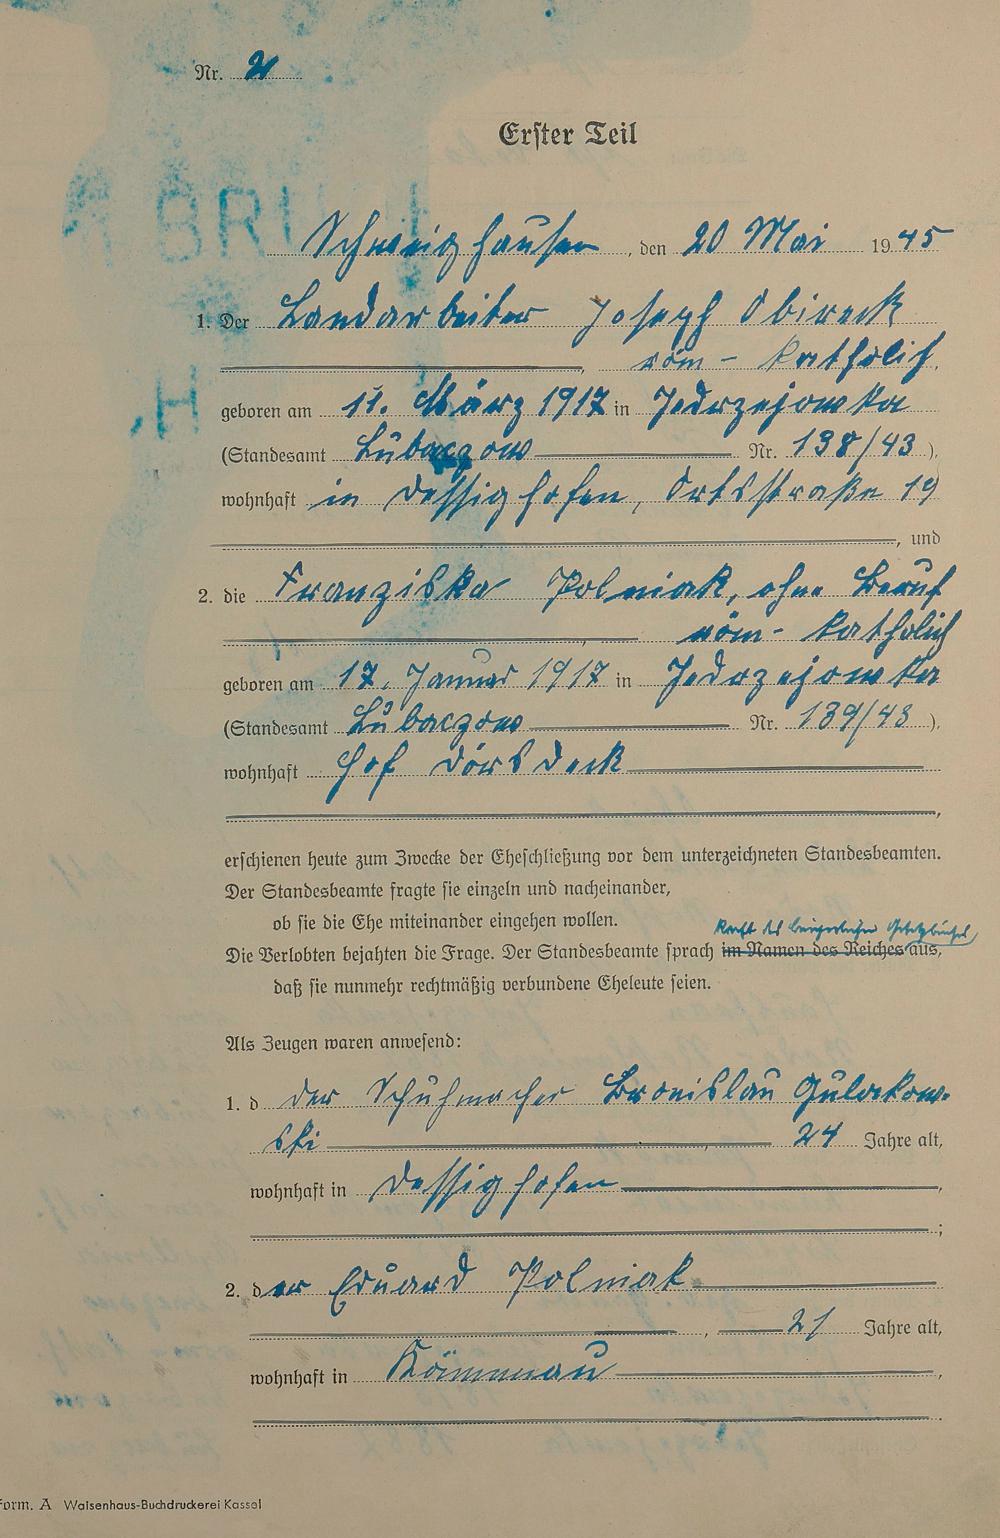 Nr. 2
Erster Teil
Schweighausen, den 20 Mai 1945
1. Der Landarbeiter Joseph Obireck
röm - katholisch,
geboren am 11. März 1917 in Jedrzejowka
(Standesamt Lubaczow Nr. 138/43),
wohnhaft in Dessighofen, Ortsstraße 19
, und
2. die Franziska Polniak, ohne Beruf
röm - katholisch
geboren am 17. Januar 1917 in Jedrzejowka
(Standesamt Lubaczow Nr. 139/43),
wohnhaft Hof Dörsdeck
,
erschienen heute zum Zwecke der Eheschließung vor dem unterzeichneten Standesbeamten.
Der Standesbeamte fragte sie einzeln und nacheinander,
ob sie die Ehe miteinander eingehen wollen.
kraft des bürgerlichen Gesetzbuches
Die Verlobten bejahten die Frage. Der Standesbeamte sprach im Namen des Reiches aus,
daß sie nunmehr rechtmäßig verbundene Eheleute seien.
Als Zeugen waren anwesend:
1. d der Schuhmacher Bronislau Gulakow-
ski, 24 Jahre alt,
wohnhaft in Dessighofen,
;
2. der Eduard Polniak
, 21 Jahre alt,
wohnhaft in Kömmenau,
.
Form. A Waisenhaus-Buchdruckerei Kassel